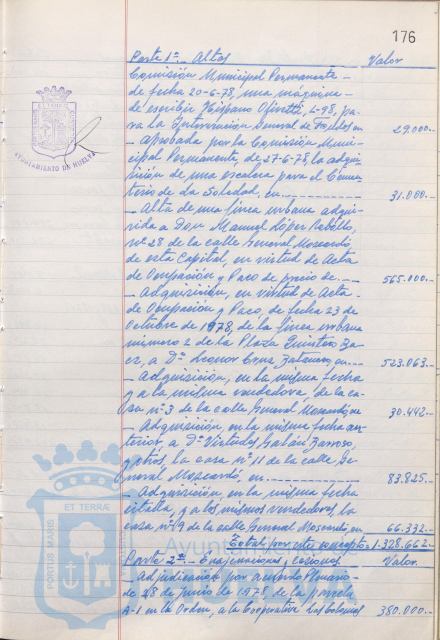 176
Parte 1ª.- Altas Valor
Comisión Municipal Permanente -
de fecha 20-6-78, una máquina -
de escribir Hispano Olivetti, L-98, pa-
ra la Intervención General de Fondos, en 29.000.-
- Aprobada por la Comisión Muni-
cipal Permanente, de 27-6-78, la adqui-
sición de una escalera para el Cemen-
terio de La Soledad, en 31.000.-
- Alta de una finca urbana adqui-
rida a Don Manuel López Rebollo,
nº 28 de la calle General Moscardó
de esta Capital, en virtud de Acta
de Ocupación y Pago de precio de 565.000.-
- Adquisición, en virtud de Acta -
de Ocupación y Pago, de fecha 23 de
Octubre de 1978, de la finca urbana
número 2 de la Plaza Quintero Bá-
ez, a Dª Leonor Cruz, en 523.063.-
- Adquisición, en la misma fecha
y a la misma vendedora, de la ca-
sa nº 3 de la calle General Moscardó, en 30.442.-
- Adquisición en la misma fecha an-
terior, a Dª Virtudes Galán Barroso,
y otros, la casa nº 11 de la calle Ge-
neral Moscardó, en 83.825.-
- Adquisición, en la misma fecha
citada, y a los mismos vendedores, la
casa nº 9 de la calle General Moscardó, en 66.332.-
Total por este concepto 1.328.662.-
Parte 2ª.- Enajenaciones y Valor.
Adjudicación por acuerdo Plenario
de 28 de Junio de 1978, de la parcela
A-1 en la Orden, a la Cooperativa Los 380.000.-
AYUNTAMIENTO DE HUELVA
PORTUS MARIS
ET TERRÆ
Ayuntamiento